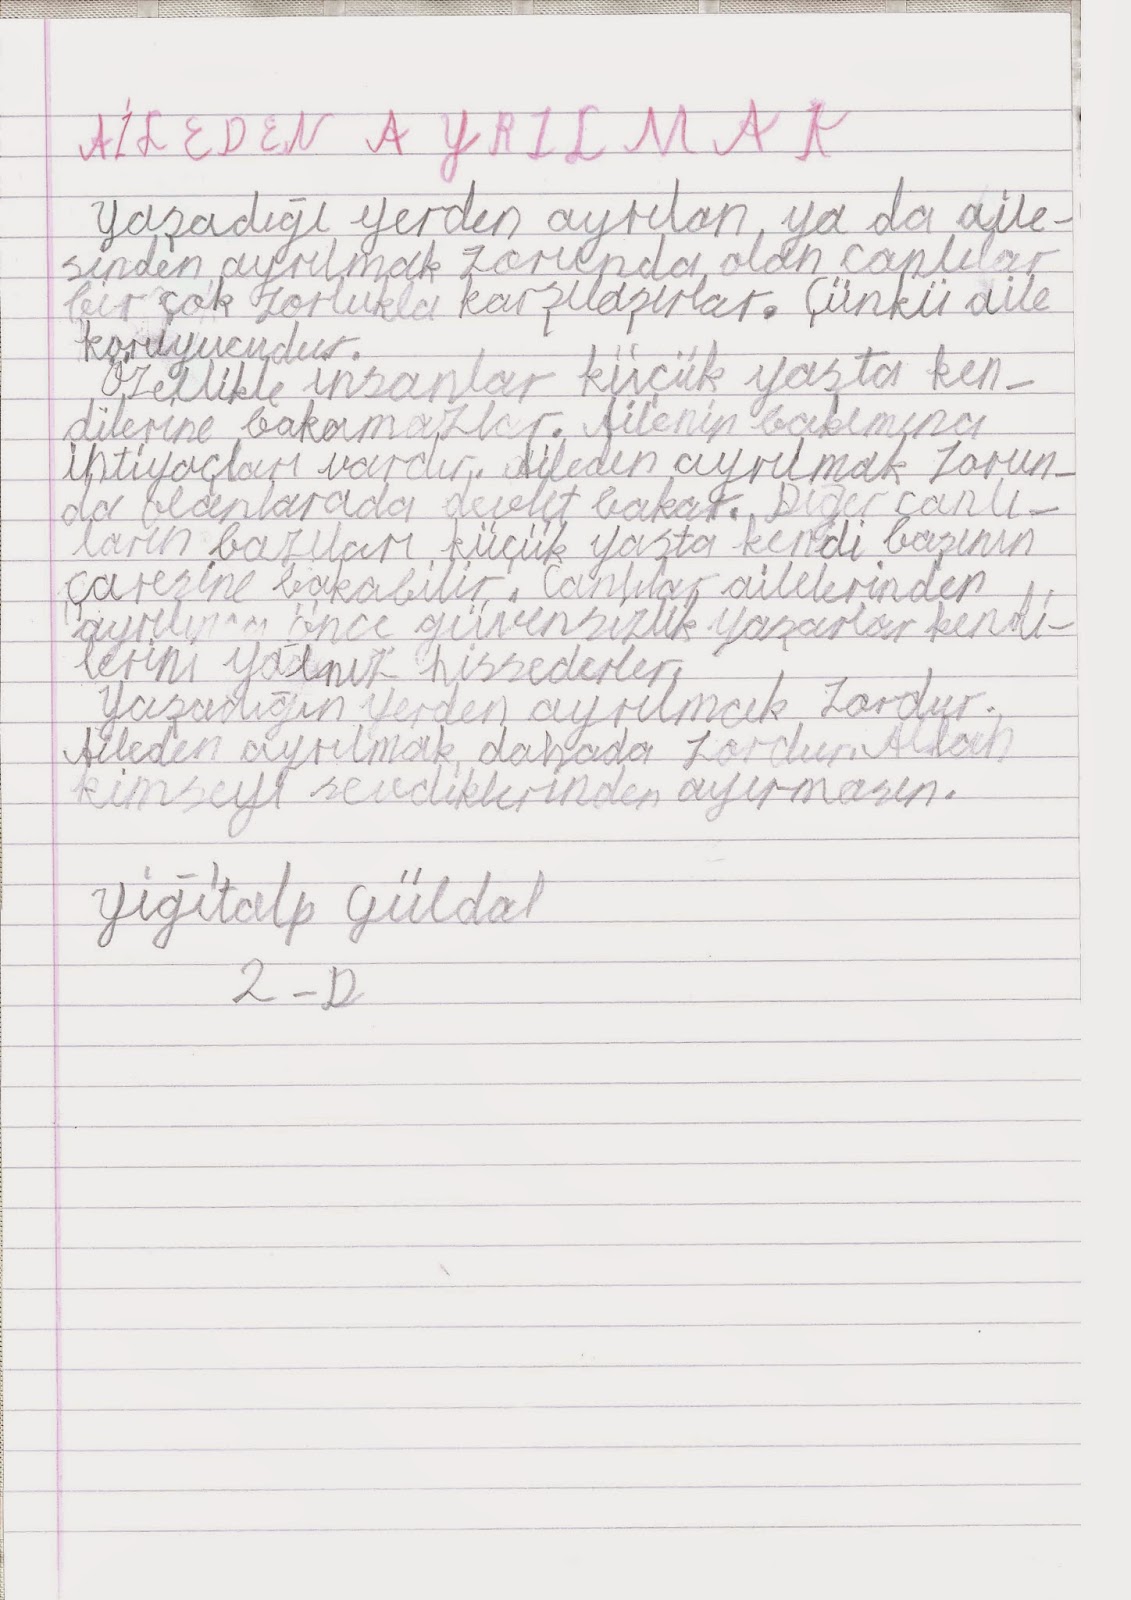 AİLEDEN AYRILMAK
Yaşadığı yerden ayrılan ya da aile-
sinden ayrılmak zorunda olan canlılar
bir çok zorlukla karşılaşırlar. Çünkü aile
koruyucudur.
Özellikle insanlar küçük yaşta ken-
dilerine bakamazlar. Ailenin bakımına
ihtiyaçları vardır. Aileden ayrılmak zorun-
da olanlarada devlet bakar. Diğer canlı-
ların bazıları küçük yaşta kendi başının
çaresine bakabilir. Canlılar ailelerinden
ayrılınca önce güvensizlik yaşarlar kendi-
lerini yalnız hissederler.
Yaşadığın yerden ayrılmak zordur.
Aileden ayrılmak dahada zordur. Allah
kimseyi sevdiklerinden ayırmasın.
Yiğitalp Güldal
2-D